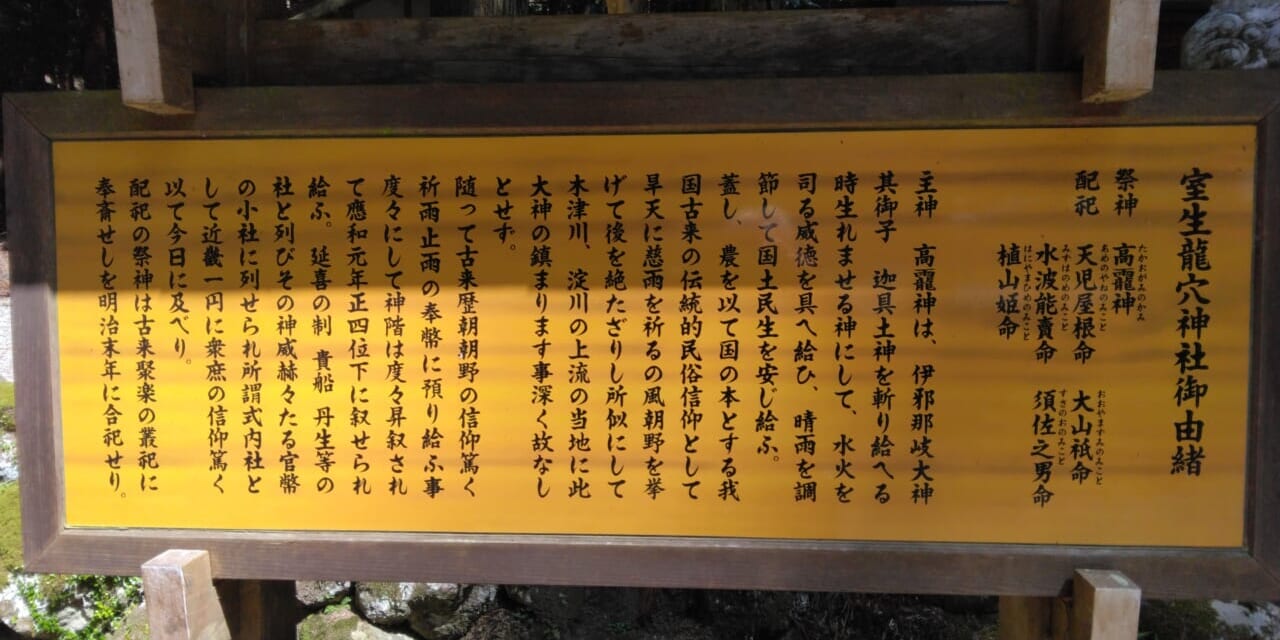 室生龍穴神社御由緒
祭神　高龗神
たかおがみのかみ
配祀　天児屋根命　大山祇命
あめのやねのみこと　おおやますみのみこと
水波能賣命　須佐之男命
みずはのめのみこと　すさのおのみこと
植山姫命
はにやまひめのみこと
主神　高龗神は、伊邪那岐大神
其御子　迦具土神を斬り給へる
時生れませる神にして、水火を
司る威徳を具へ給ひ、晴雨を調
節して国土民生を安じ給ふ。
蓋し、農を以て国の本とする我
国古来の伝統的民俗信仰として
旱天に慈雨を祈るの風朝野を挙
げて後を絶たざりし所似にして
木津川、淀川の上流の当地に此
大神の鎮まります事深く故なし
とせず。
随って古来歴朝朝野の信仰篤く
祈雨止雨の奉幣に預り給ふ事
度々にして神階は度々昇叙され
て應和元年正四位下に叙せられ
給ふ。延喜の制　貴船　丹生等の
社と列びその神威赫々たる官幣
の小社に列せられ所謂式内社と
して近畿一円に衆庶の信仰篤く
以て今日に及べり。
配祀の祭神は古来聚楽の叢祀に
奉斎せしを明治末年に合祀せり。